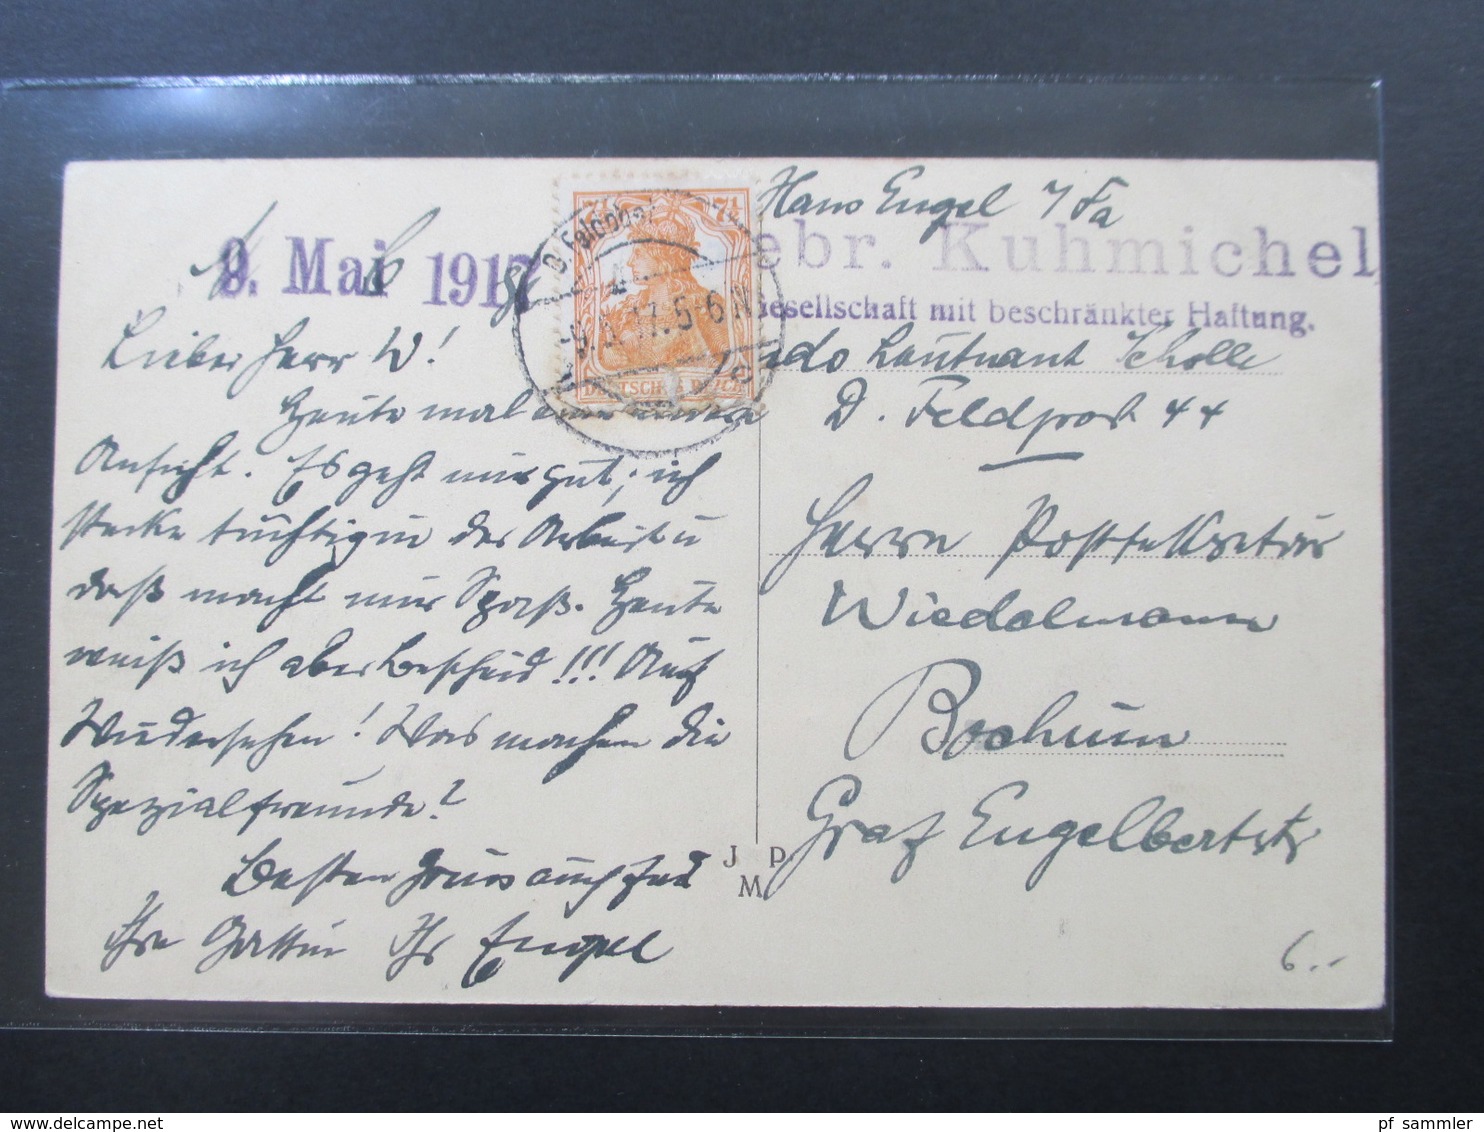 9. Mai 1917
Lieber Herr W!
Heute mal eine
Ansicht. Es geht mir gut, ich
stecke tüchtig in der Arbeit u
daß macht mir Spaß. Heute
weiß ich aber bescheid!!! Auf
Wiedersehen! Was machen die
Spezialfreunde?
Besten Gruss auch
Ihre Gattin Ihr Engel
7½ 7½
-9.5.17.5-6N
DEUTSCHES REICH
J. P.
M.
Hans Engel
ebr. Kuhmichel
Gesellschaft mit beschränkter Haftung.
Leutnant Scholle
D. Feldpost 44
Herrn Postsekretär
Wiedelmann
Bochum
Graf Engelbertstr
6.--
pf_sammler